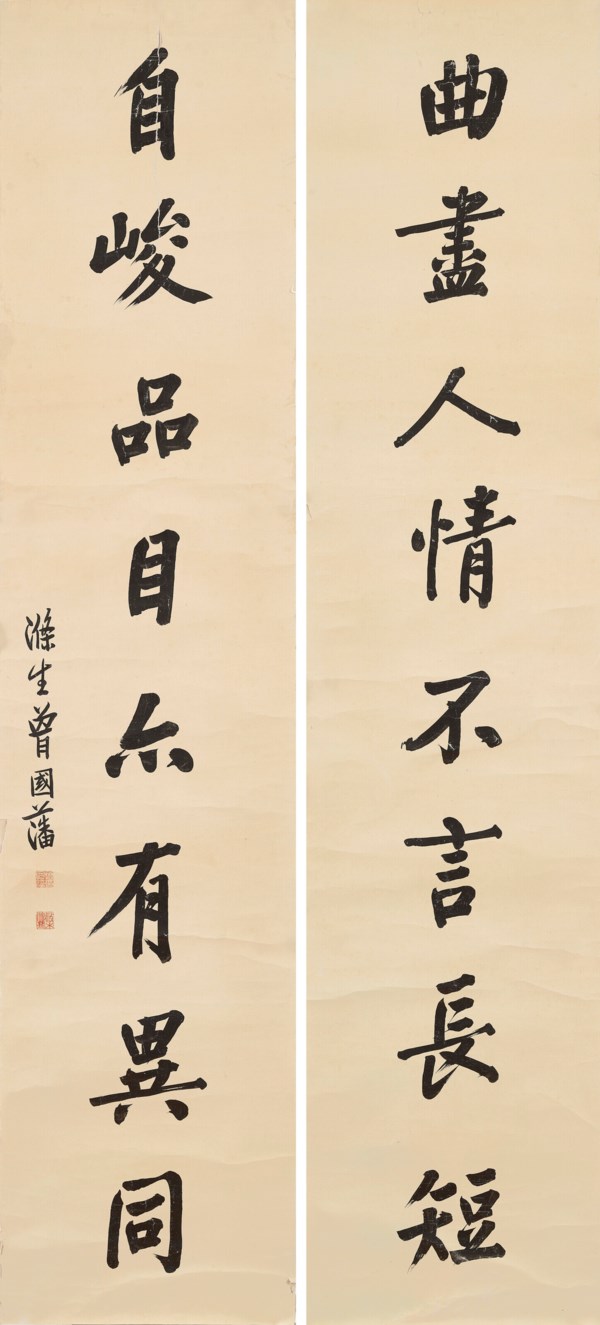 曲盡人情不言長短
自峻品目亦有異同
滌生曾國藩